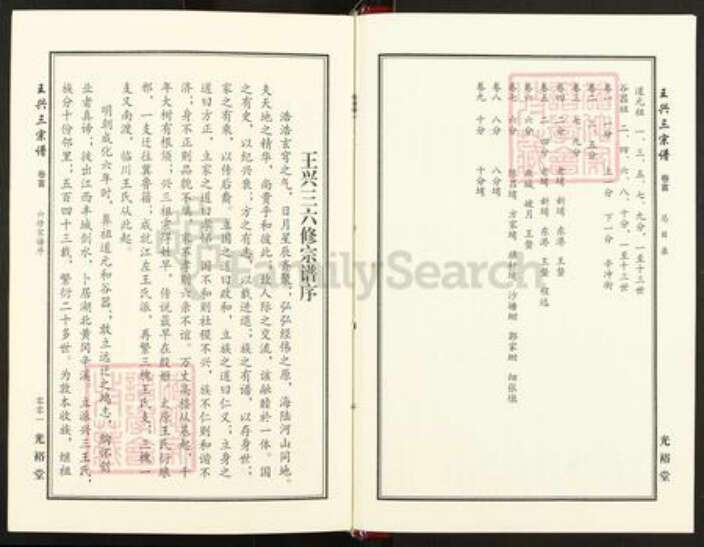 王兴三宗谱 卷首 总目录
道元祖 一、三、五、七、九分，一至十三世
谷器祖 二、四、六、八、十分，一至十三世
卷一 一分 上一分 下一分 李冲街
卷二 三、五分
卷三 七、九分
卷四 二分 老垸 新垸 东港 王盤
卷五 二、四分 老垸 新垸 东港 王盤 程远
卷六 六分 坡月 王盤
卷七 六分 方家垸 旗杆垸 郭家
卷八 八分 八分垸
卷九 十分 十分垸
光裕堂
王兴三六修宗谱序
浩浩玄穹之气，日月星辰齐聚；弘弘经伟之原，海陆河山同地。
夫天地之精华，尚贵乎和彼此；故人际之交流，该融赡于一体。国
之有史，以纪兴衰；方之有志，以载进退；族之有谱，以存身世；
家之有乘，以传后裔。立国之道曰政和，立族之道曰仁义；立身之
道曰方正，立家之道曰孝悌。国不和则社稷不兴，族不仁则和谐不
济；身不正则品貌不端，家不孝则六亲不谊。万丈高楼从基起，千
年大树有根须；兴三祖宗得姓早，传说最早在殷姬。太原王氏衍琅
邪，一支迁往冀鲁籍；成就江左王氏派，再繁三槐王氏支；三槐一
支又南渡，临川王氏从此起。
明朝成化六年时，鼻祖道元和谷器；敢立远迁之鸿志，胸怀创
业者真谛；拔出江西丰城剑水，卜居湖北黄冈辛溪。立派兴三王氏，
族分十份邻里；五百四十三载，繁衍二十多世。为敦本收族，继祖
王兴三宗谱 卷首 六修宗谱序 光裕堂
FamilySearch